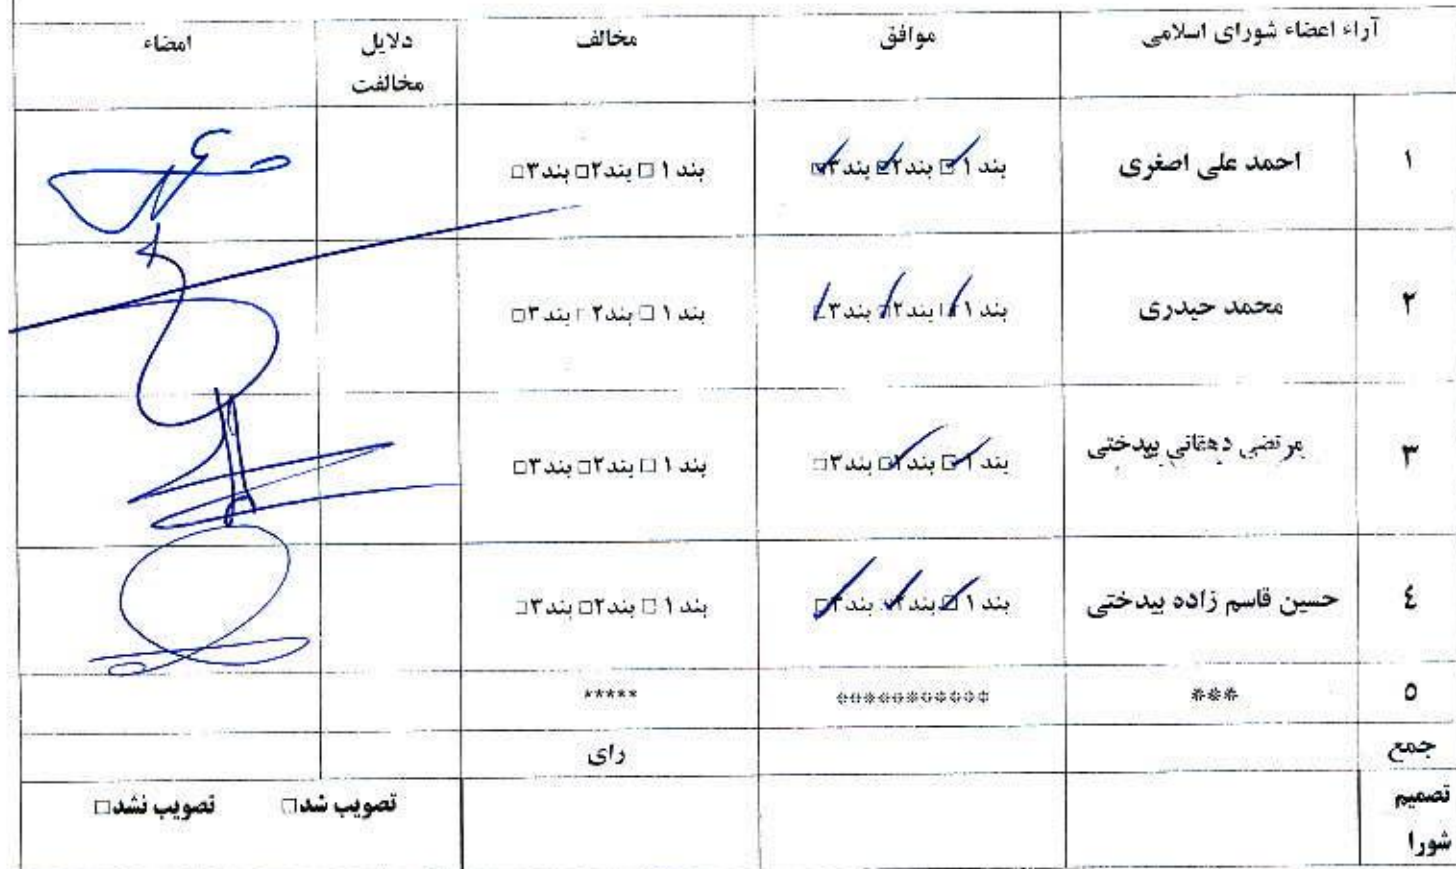 آراء اعضاء شورای اسلامی موافق مخالف دلایل مخالفت امضاء
۱ احمد علی اصغری بند ۱ ☑ بند۲ ☑ بند۳ ☑ بند ۱ □ بند۲ □ بند۳ □
۲ محمد حیدری بند ۱ ☑ بند۲ ☑ بند۳ ☑ بند ۱ □ بند۲ □ بند۳ □
۳ مرتضی دهقانی بیدختی بند ۱ ☑ بند۲ ☑ بند۳ □ بند ۱ □ بند۲ □ بند۳ □
٤ حسین قاسم زاده بیدختی بند ۱ ☑ بند۲ ☑ بند۳ ☑ بند ۱ □ بند۲ □ بند۳ □
۵ *** *********** *****
جمع رای
تصمیم شورا تصویب شد□ تصویب نشد□